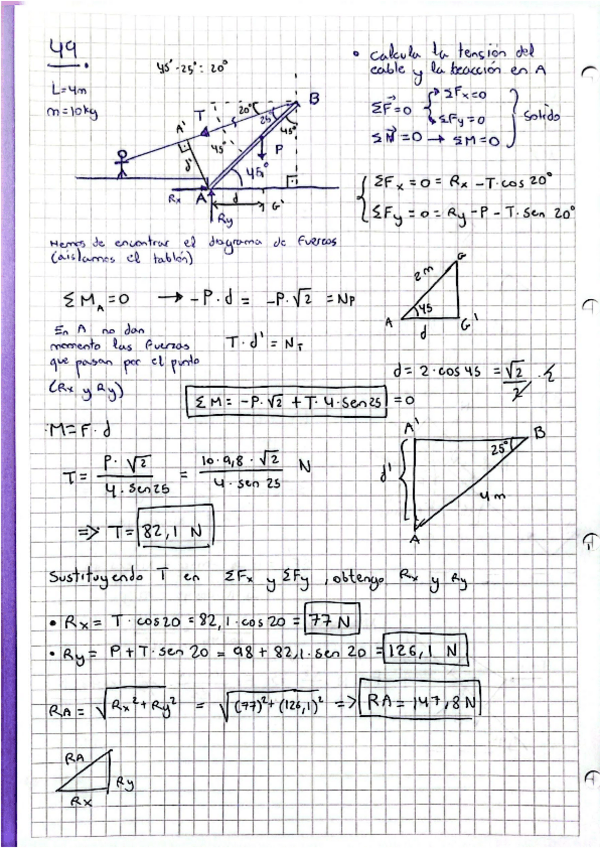 49.
45°-25°: 20°
L=4m
m=10kg
• calcula la tensión del
cable y la reacción en A
ΣF=0
ΣFx=0
ΣFy=0
ΣN=0 → ΣM=0
Solido
A' T 20° 25° B
d' 45° P 45°
45°
Rx A d G'
Ry
ΣFx=0= Rx -T·cos 20°
ΣFy=0= Ry-P-T·sen 20°
Hemos de encontrar el diagrama de fuerzas
(aislamos el tablón)
ΣM_A=0 → -P·d = -P·√2 = Np
2m G
45
A d G'
En A no dan
momento las fuerzas
que pasan por el punto
(Rx y Ry)
T·d' = N_T
d= 2·cos45 = √2/2 · 2
ΣM= -P·√2 + T·4·sen25 =0
M=F·d
A' B
25°
d' 4m
A
T= P·√2 / 4·sen25 = 10·9,8·√2 / 4·sen25 N
=> T= 82,1 N
Sustituyendo T en ΣFx y ΣFy, obtengo Rx y Ry
• Rx= T·cos20 = 82,1·cos20 = 77 N
• Ry= P+T·sen 20 = 98+82,1·sen 20 = 126,1 N
RA= √Rx²+Ry² = √(77)²+(126,1)² => RA=147,8N
RA Ry
Rx